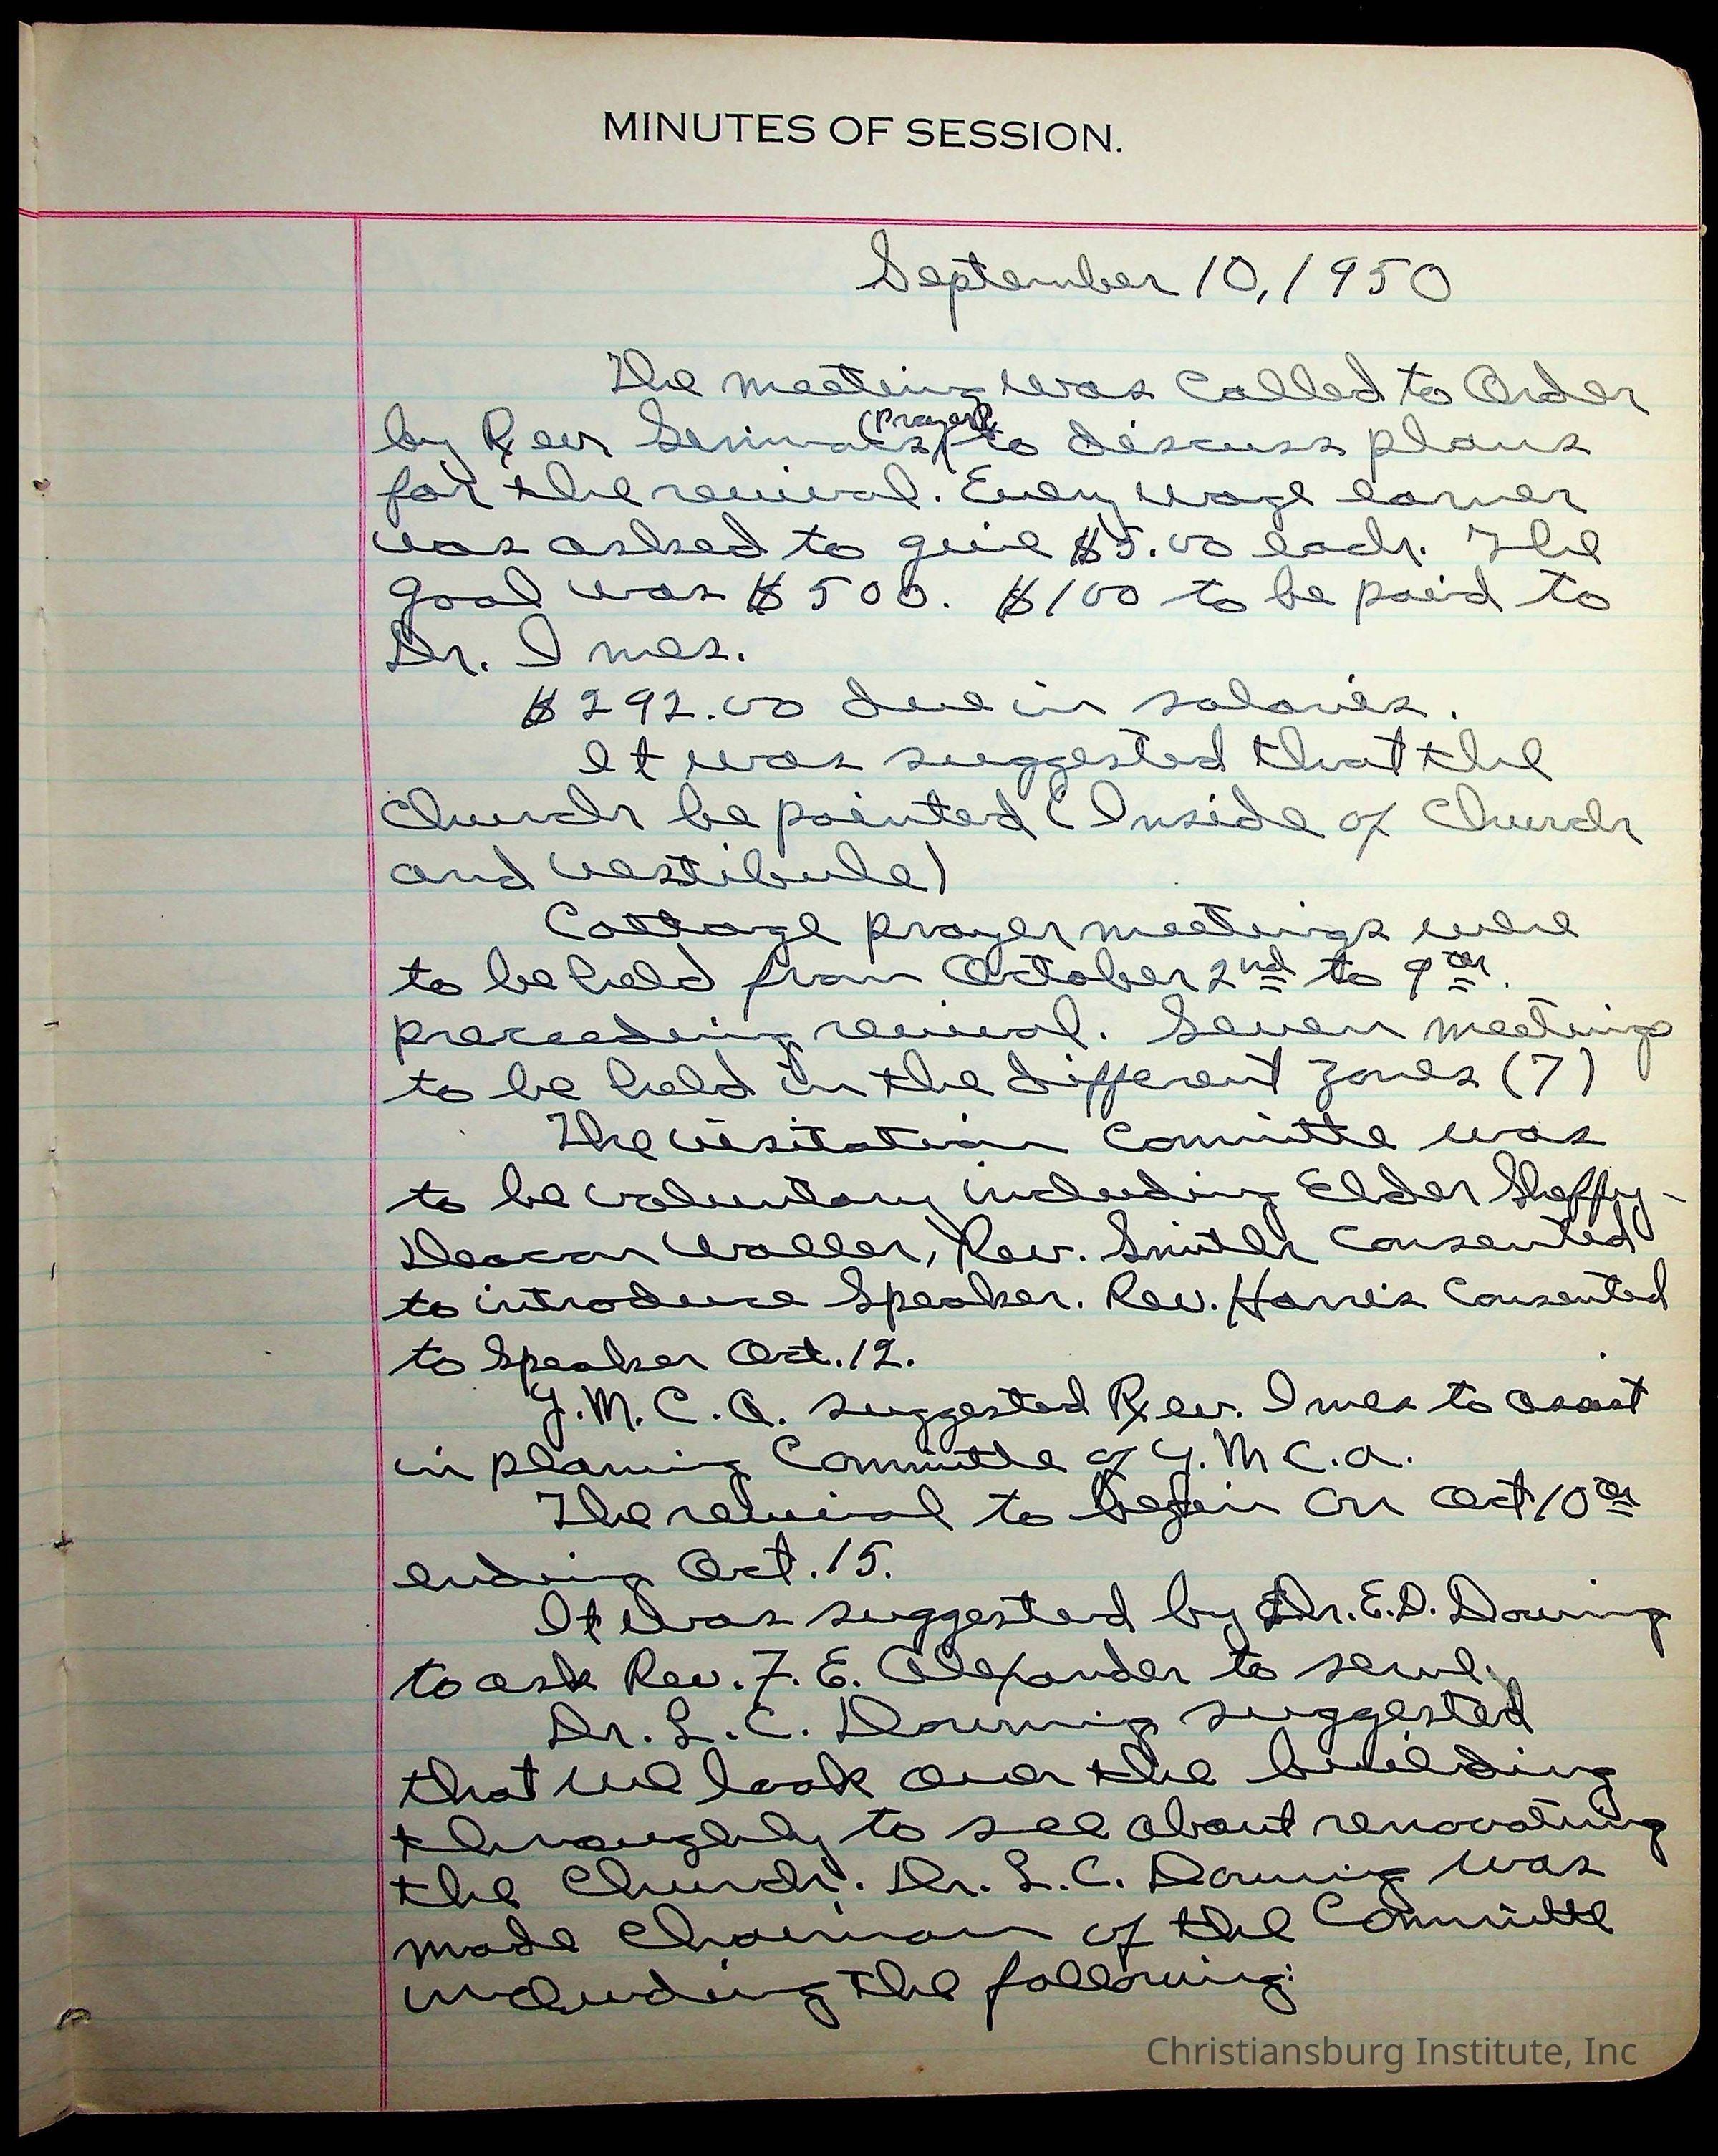 MINUTES OF SESSION.
September 10, 1950
The meeting was called to Order
(Prayer)
by Rev to discuss plans
for the revival. Every wage earner
was asked to give $5.00 each. The
goal was $500. $100 to be paid to
Dr. Imes.
$292.00 due in salaries.
It was suggested that the
Church be painted (Inside of Church
and vestibule)
Cottage prayer meetings were
to be held from October 2nd to 9th.
preceeding revival. Seven meetings
to be held in the different zones (7)
The visitation committe was
to be voluntary including Elder Sheffey-
Deacon Waller, Rev. Smith consented
to introduce Speaker. Rev. Harris Consented
to Speaker Oct. 12.
Y.M.C.A. suggested Rev. Imes to assist
in planing Committe of Y.M C.A.
The revival to begin on Oct 10th
ending Oct. 15.
It was suggested by Dr. E.D. Downing
to ask Rev. F. E. Alexander to serve.
Dr. L.C. Downing suggested
that we look over the building
throughly to see about renovating
the Church. Dr. L.C. Downing was
made Chairman of the Committe
including the following:
Christiansburg Institute, Inc